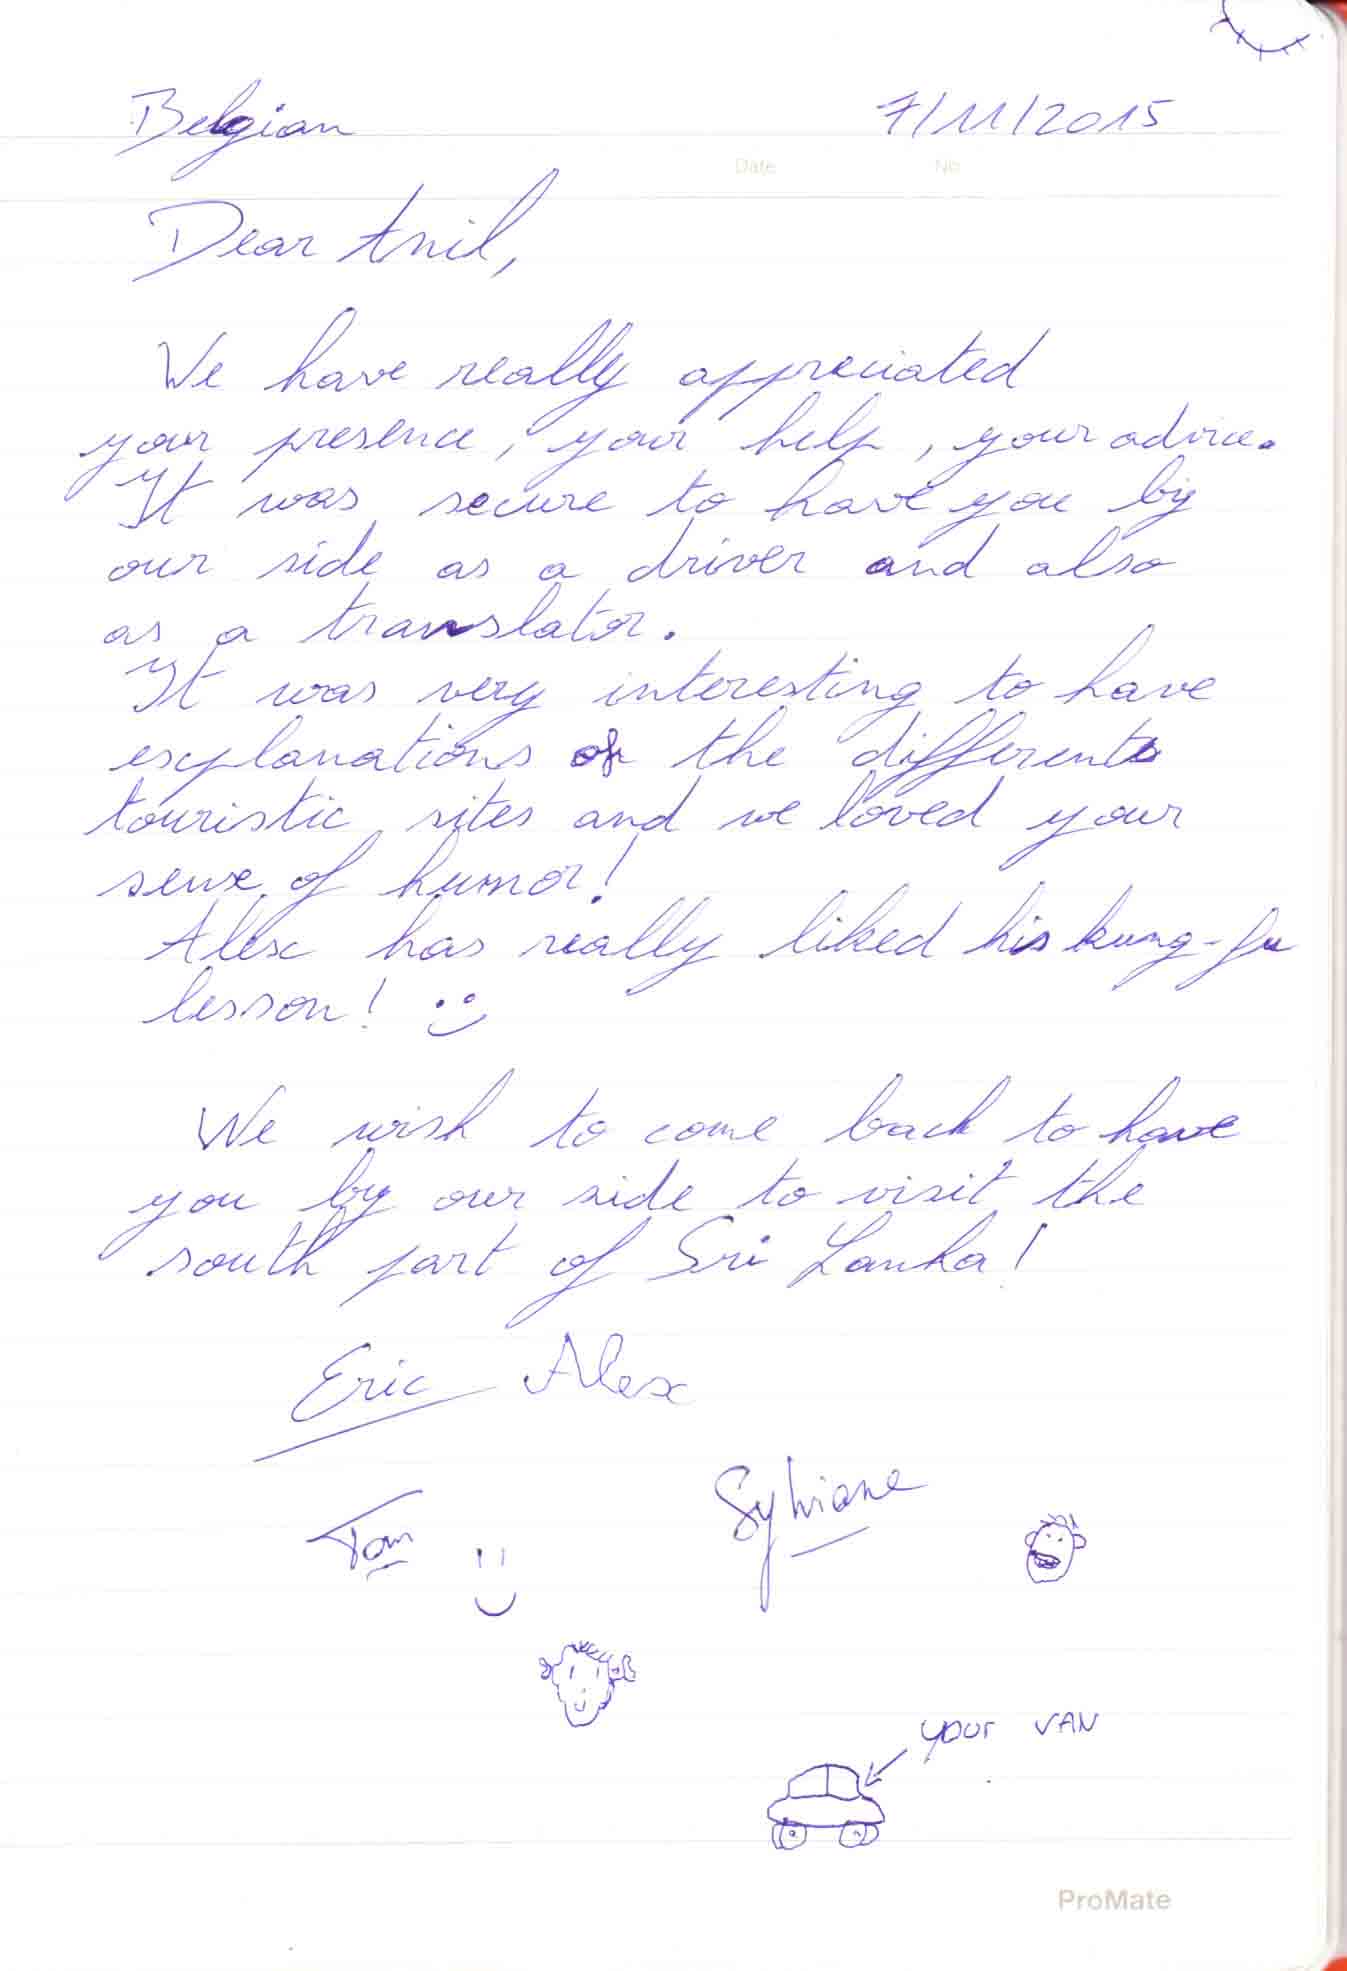 Belgian 7/11/2015
Date No
Dear Anil,
We have really appreciated
your presence, your help, your advice.
It was secure to have you by
our side as a driver and also
as a translator.
It was very interesting to have
explanations of the differents
touristic sites and we loved your
sense of humor!
Alex has really liked his kung-fu
lesson! :)
We wish to come back to have
you by our side to visit the
south part of Sri Lanka!
Eric Alex
Sylviane
Tom
your VAN
ProMate